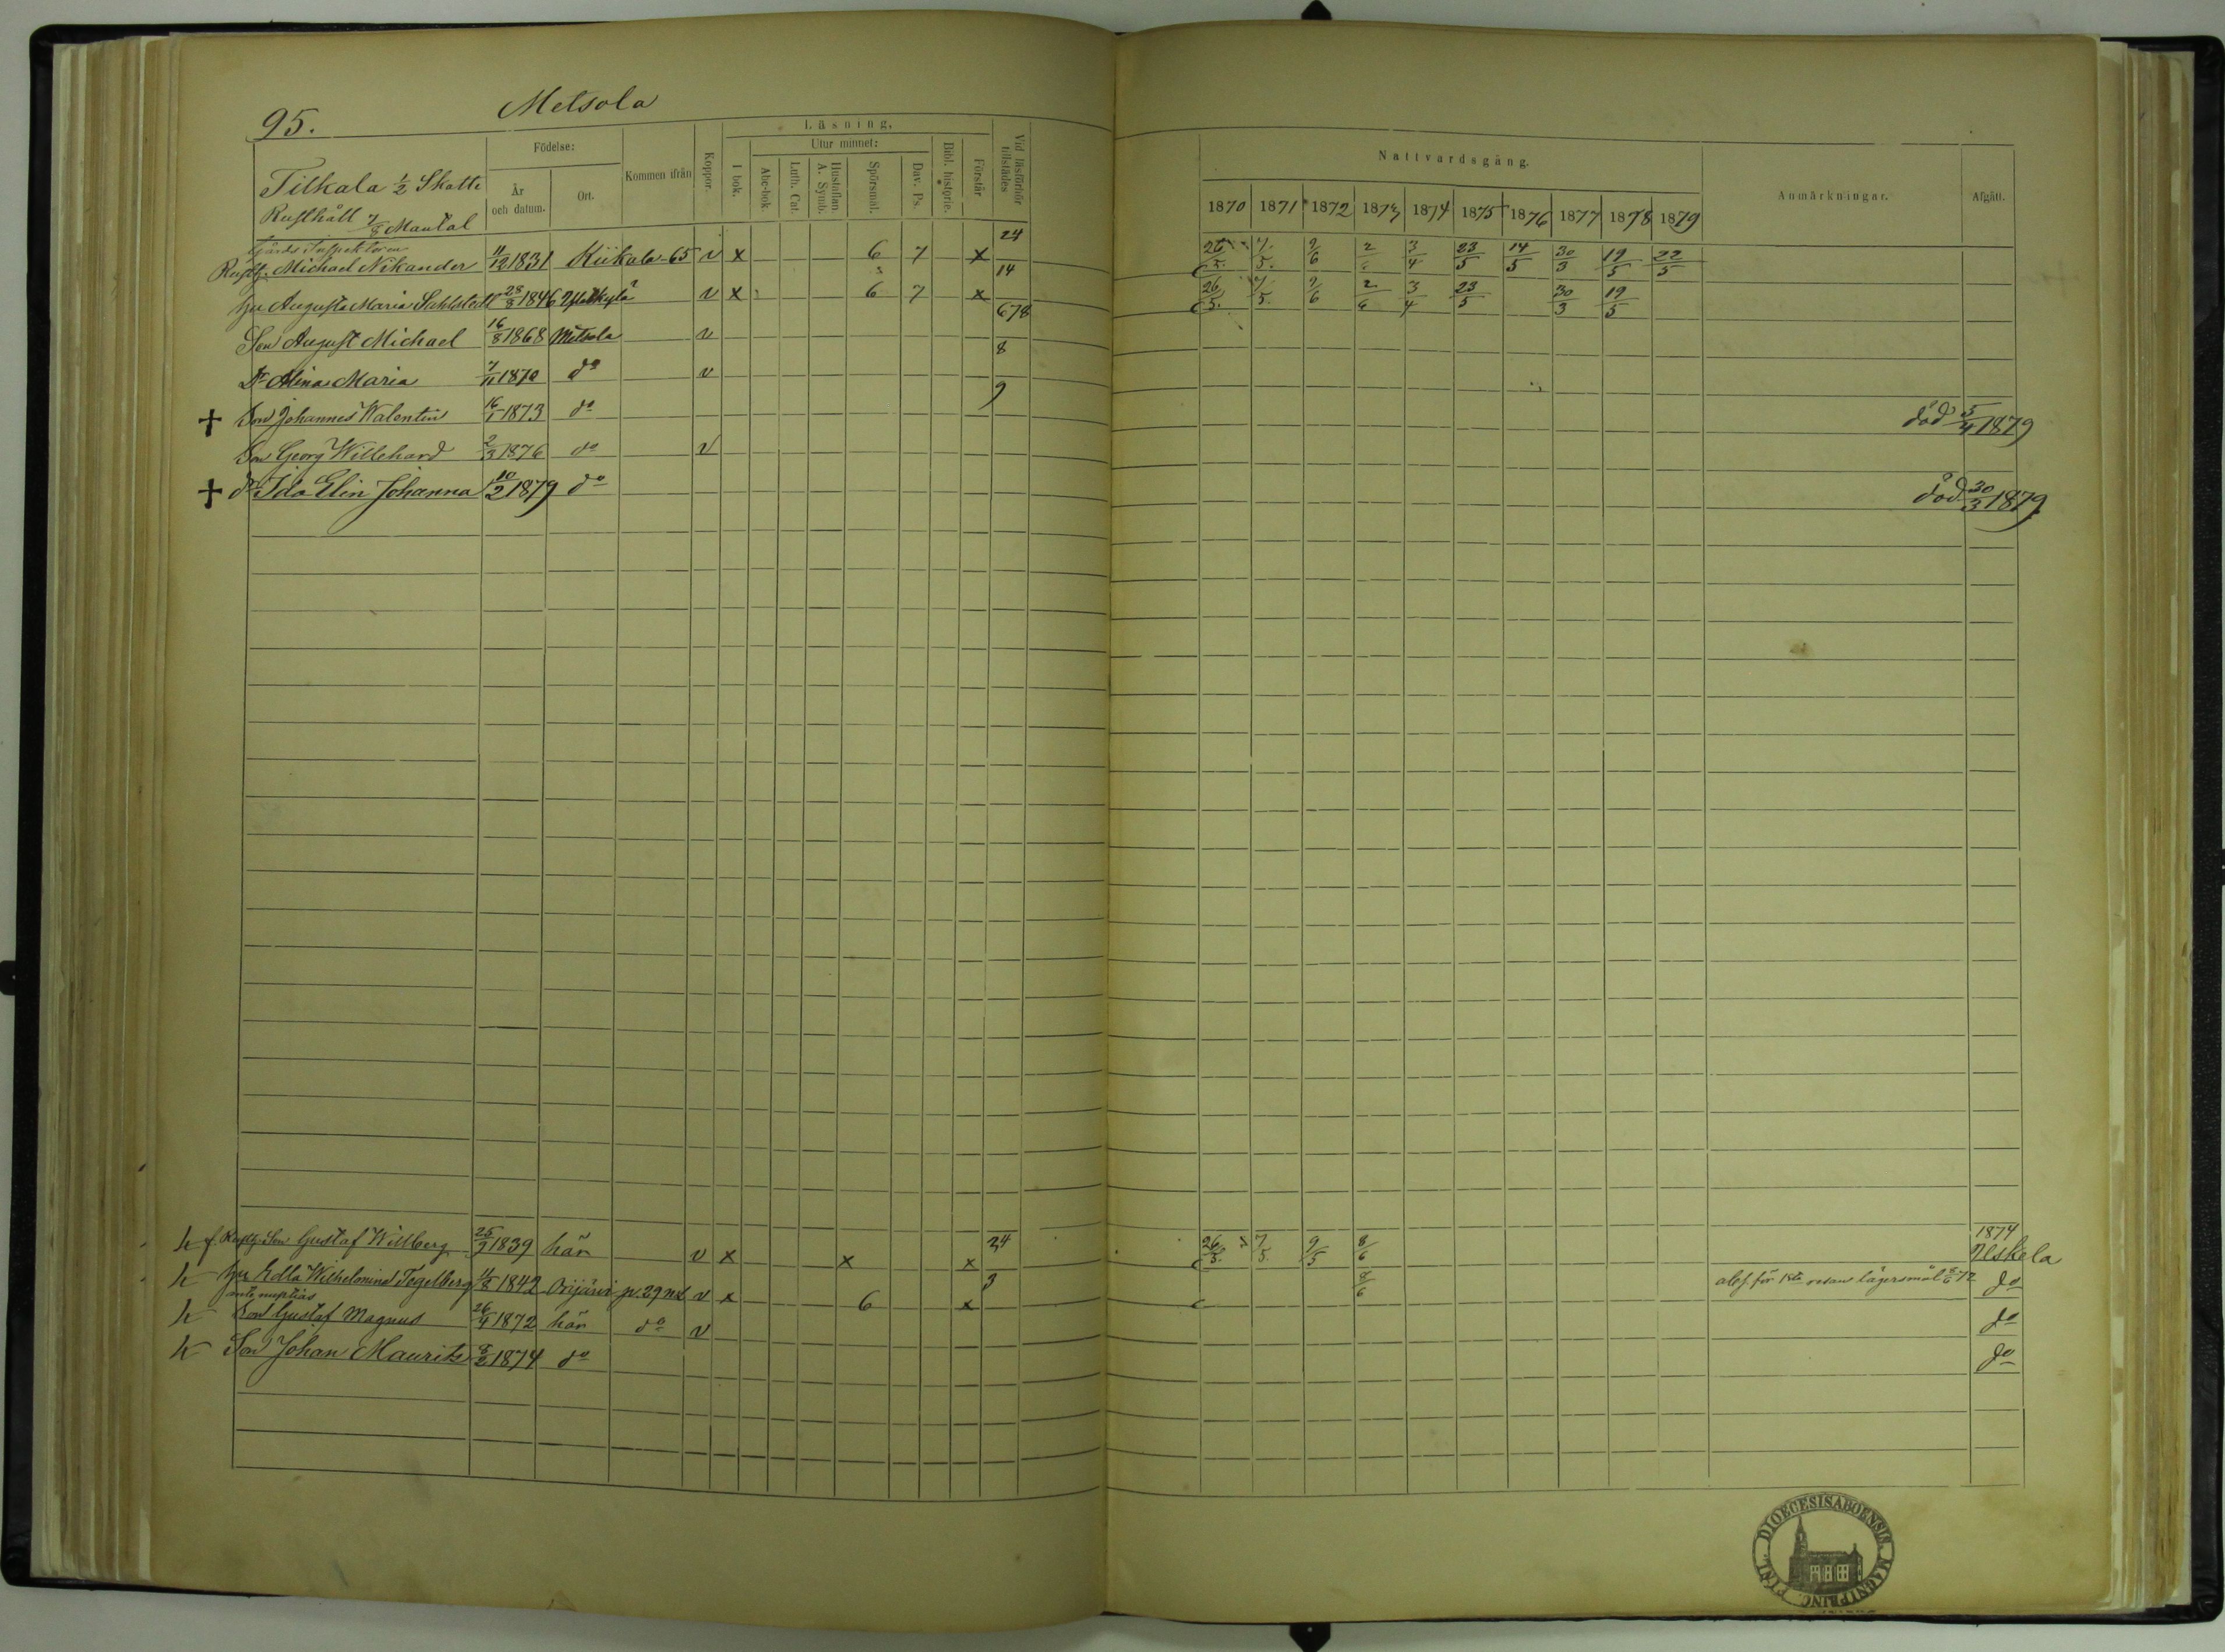 95.
Metsola
Tilkala 1/2 Skatte
Rusthåll 7/8 Mantal
Födelse:
År och datum.
Ort.
Kommen ifrån
Koppor.
Läsning,
I bok.
Utur minnet:
Abc-bok
Luth. Cat.
Hustaflan A. Symb.
Spörsmål.
Dav. Ps.
Bibl. historie.
Förstår
Vid läsförhör tillstädes
Nattvardsgång.
1870 1871 1872 1873 1874 1875 1876 1877 1878 1879
Anmärkningar.
Afgått.
Gårds Inspektoren
Rusth. Michael Nikander 11/12 1831 Kiikala -65 v x 6 7 x 24 26/5 7/5 9/6 2/6 3/4 23/5 14/5 30/3 19/5 22/5
hu Augusta Maria Sahlstedt 28/8 1846 v x 6 7 x 14 26/5 7/5 9/6 2/6 3/4 23/5 30/3 19/5
Son August Michael 16/8 1868 Metsola v 678
Dr Alina Maria 7/11 1870 do v 8
† Son Johannes Walentin 16/1 1873 do 9 död 5/4 1879
Son Georg Willehard 2/3 1876 do v
† dr Ida Elin Johanna 10/2 1879 do död 30/3 1879
f. Rusth. Son Gustaf Willberg 25/9 1839 här v x x x 24 26/5 7/5 9/5 8/6 1874 Ilskela
hu Edla Wilhelmina Tegelberg 11/8 1842 Orijärvi p. 29 v x 6 x 3 8/6 abs. för 1sta resan lägersmål 8/6 72 do
ante nuptias
Son Gustaf Magnus 26/4 1872 här do v do
Son Johan Maurits 8/2 1874 do do
DIOECESIS ABOENSIS. MAGNI PRINC. FINL.